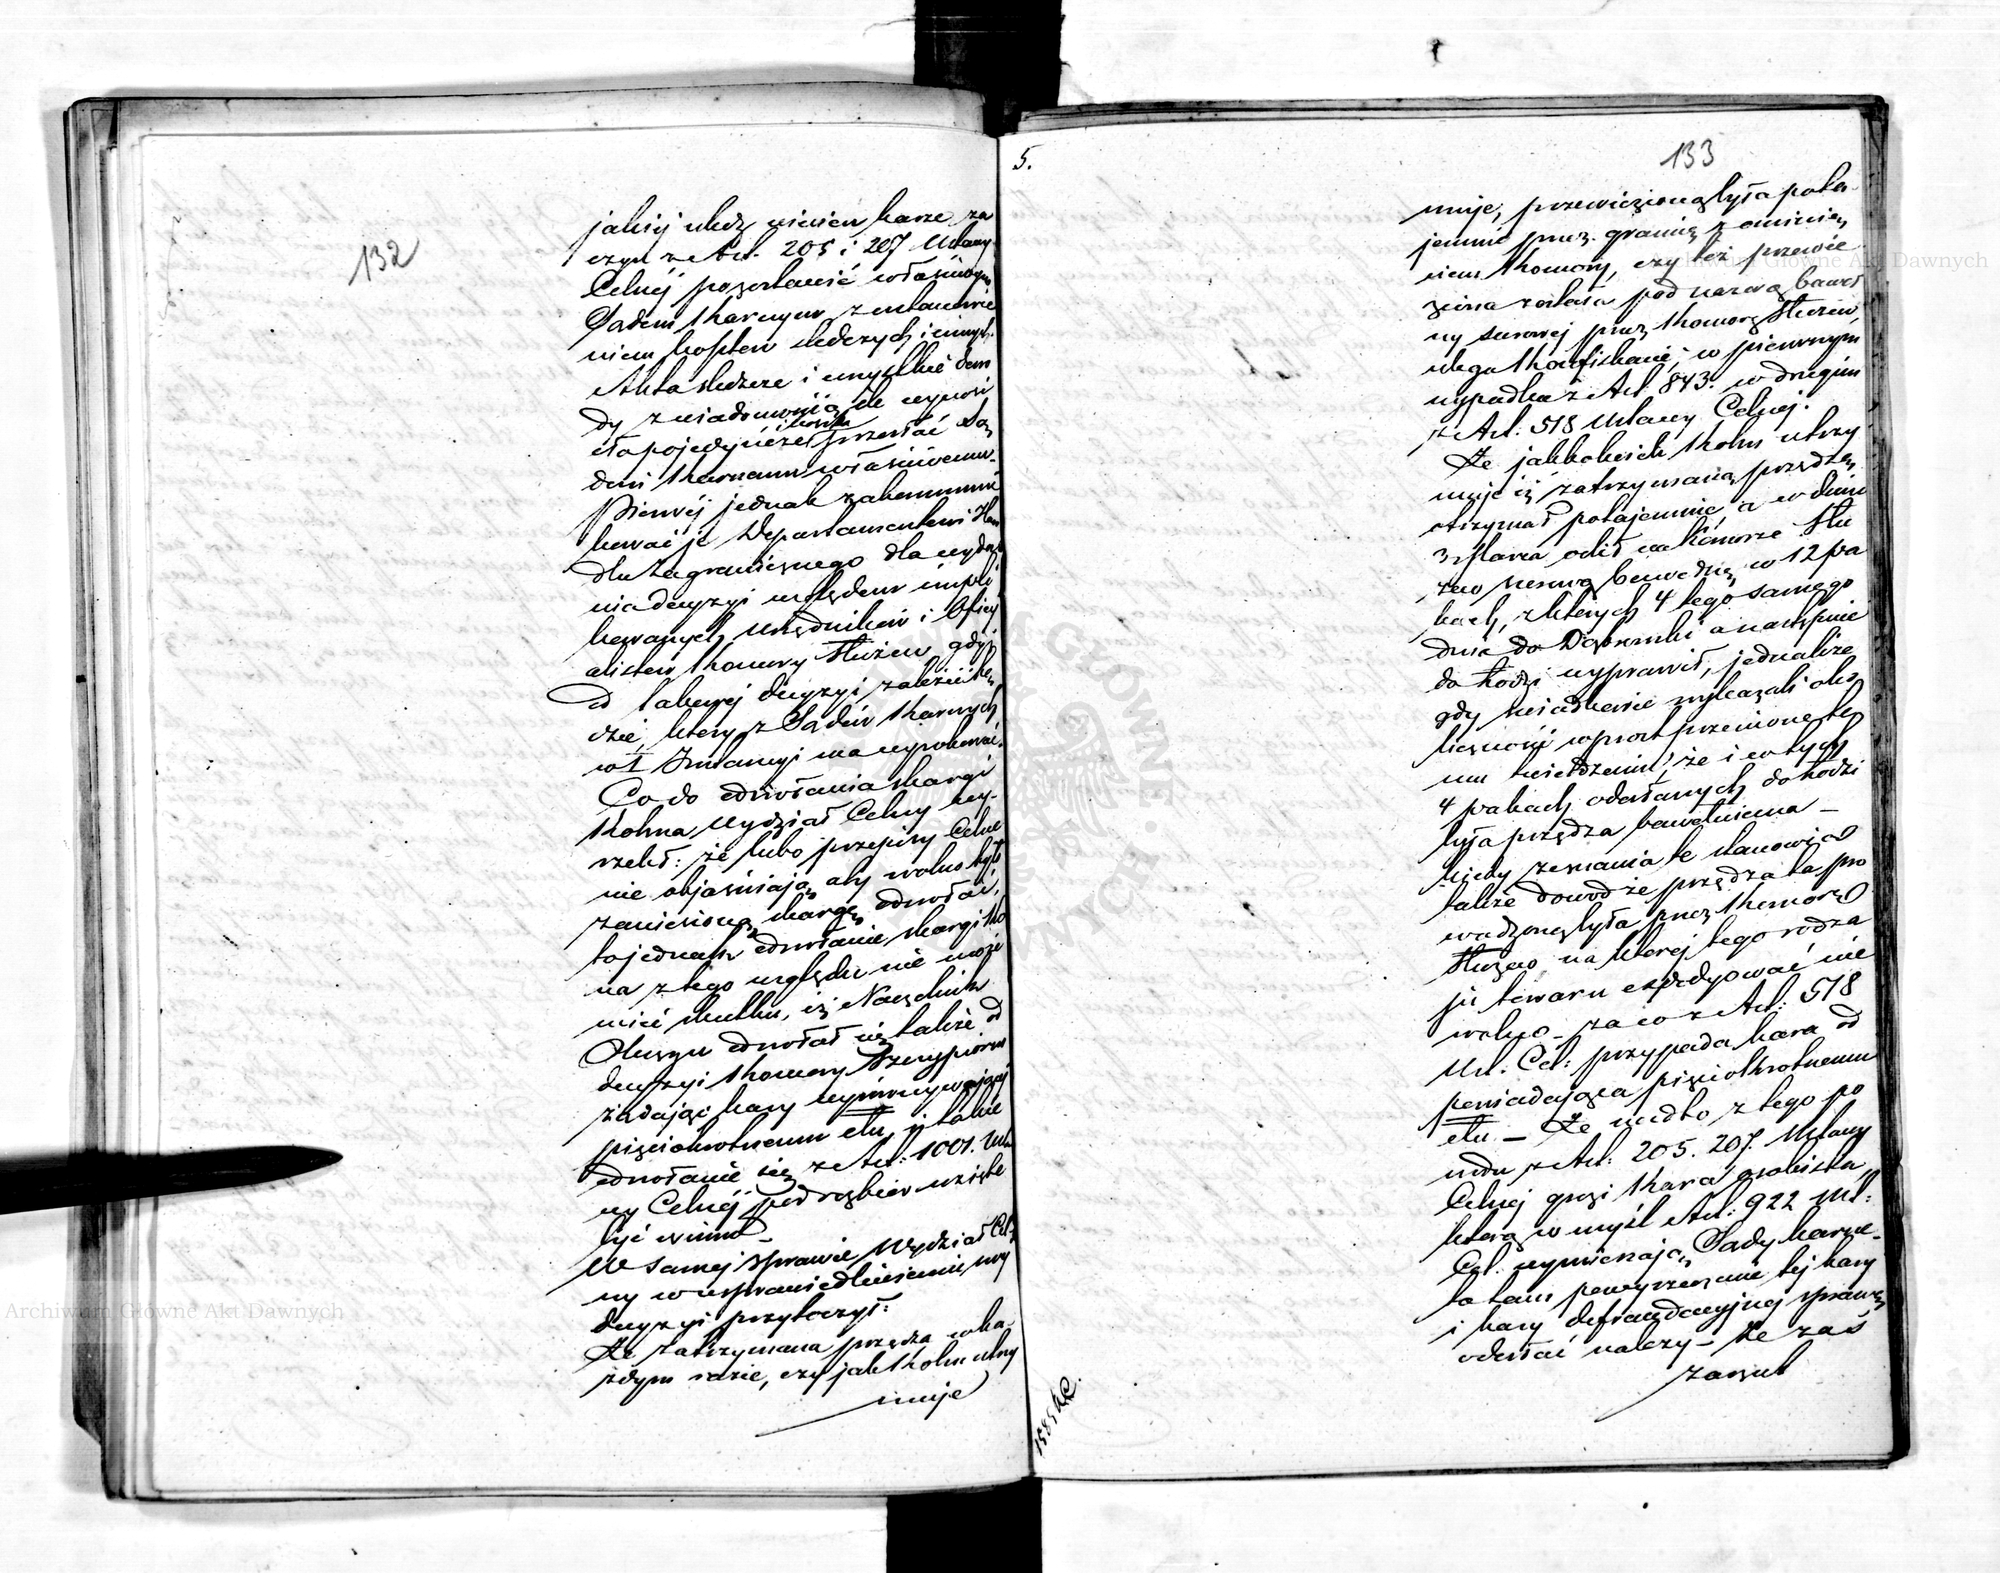 132
jakiej uledz winien karze za
czyn z Art. 205 i 207 Ustawy
Celnej pozostawić właściwym
Sądom Karnym z ustanowie
niem kosztów śledczych i innych.
Akta śledcze i wszystkie dowo
dy z wiadomością ile wynosi
cło pojedyńcze i kara przesłać Są
dowi Karnemu właściwemu.
Pierwej jednak zakommuni
kować je Departamentowi Han
dlu Zagranicznego dla wyda
nia decyzyi względem impli
kowanych Urzędników i Offici
alistów Komory Służew, gdyż
od takowej decyzyi zależeć bę
dzie, który z Sądów Karnych
w I Instancyi ma wyrokować.
Co do odwołania skargi
Kohna Wydział Celny wy-
rzekł: że lubo przepisy Celne
nie objaśniają, aby wolno było
zaniesioną skargę odwołać,
to jednak odwołanie skargi Ko
na z tego względu nie może
mieć skutku, iż Naczelnik
Okręgu odwołał się także od
decyzyi Komory Szczypiorno
żądając kary wyrównywającej
pięciokrotnemu cłu, i takie
odwołanie się z Art: 1001. Usta
wy Celnej pod rozbiór wzięte
być winno.
W samej sprawie Wydział Cel
ny w usprawiedliwieniu swej
decyzyi przytoczył:
Że zatrzymana przędza w ka-
żdym razie, czy jak Kohn utrzy
muje
5.
133
muje, przewiezioną była pota-
jemnie przez granicę z ominię
ciem Komory, czy też przewie
ziona została pod nazwą baweł
ny surowej przez Komorę Służew,
ulega Konfiskacie; w pierwszym
wypadku z Art. 843. w drugim
z Art. 518 Ustawy Celnej.
Że jakkolwiek Kohn utrzy
muje iż zatrzymaną przędzę
otrzymał potajemnie, a w dniu
3 Marca oclił na Komorze Słu
żew surową bawełnę w 12 pa
kach, z których 4 tego samego
dnia do Dąbrowki a następnie
do Łodzi wyprawił, jednakże
gdy świadkowie wykazali oko
liczność wprost przeciwną te
mu twierdzeniu, że i w tych
4 pakach odesłanych do Łodzi
była przędza bawełniana –
kiedy zeznania te stanowią
także dowód że przędza ta pro
wadzoną była przez Komorę
Służewo na której tego rodza
ju towaru expedyować nie
wolno – za co z Art: 518
Ust. Cel: przypada kara od
powiadająca pięciokrotnemu
cłu – Że nadto z tego po
wodu z Art: 205. 207. Ustawy
Celnej grozi Kara osobista,
którą w myśl Art: 922 Ust:
Cel. wymierzają Sądy karne.
to tam powyrzeczenie tej kary
i kary defraudacyjnej sprawę
odesłać należy – że zaś
zarzut